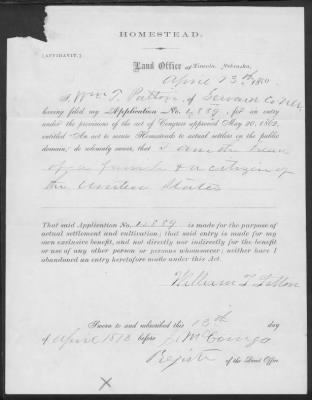 HOMESTEAD.
(AFFIDAVIT.)
Land Office of Lincoln, Nebraska,
April 13th
I, Wm T. of Seward Co Neb
having filed my Application No. for an entry
under the provisions of the act of Congress approved May 20, 1862,
entitled "An act to secure Homesteads to actual settlers on the public
domain," do solemnly swear, that I am the head
of a family & a citizen of
the United States
That said Application No. is made for the purpose of
actual settlement and cultivation; that said entry is made for my
own exclusive benefit, and not directly nor indirectly for the benefit
or use of any other person or persons whomsoever; neither have I
abandoned an entry heretofore made under this Act.
William T.
Sworn to and subscribed this 13th day
of April before
Register of the Land Office.
X